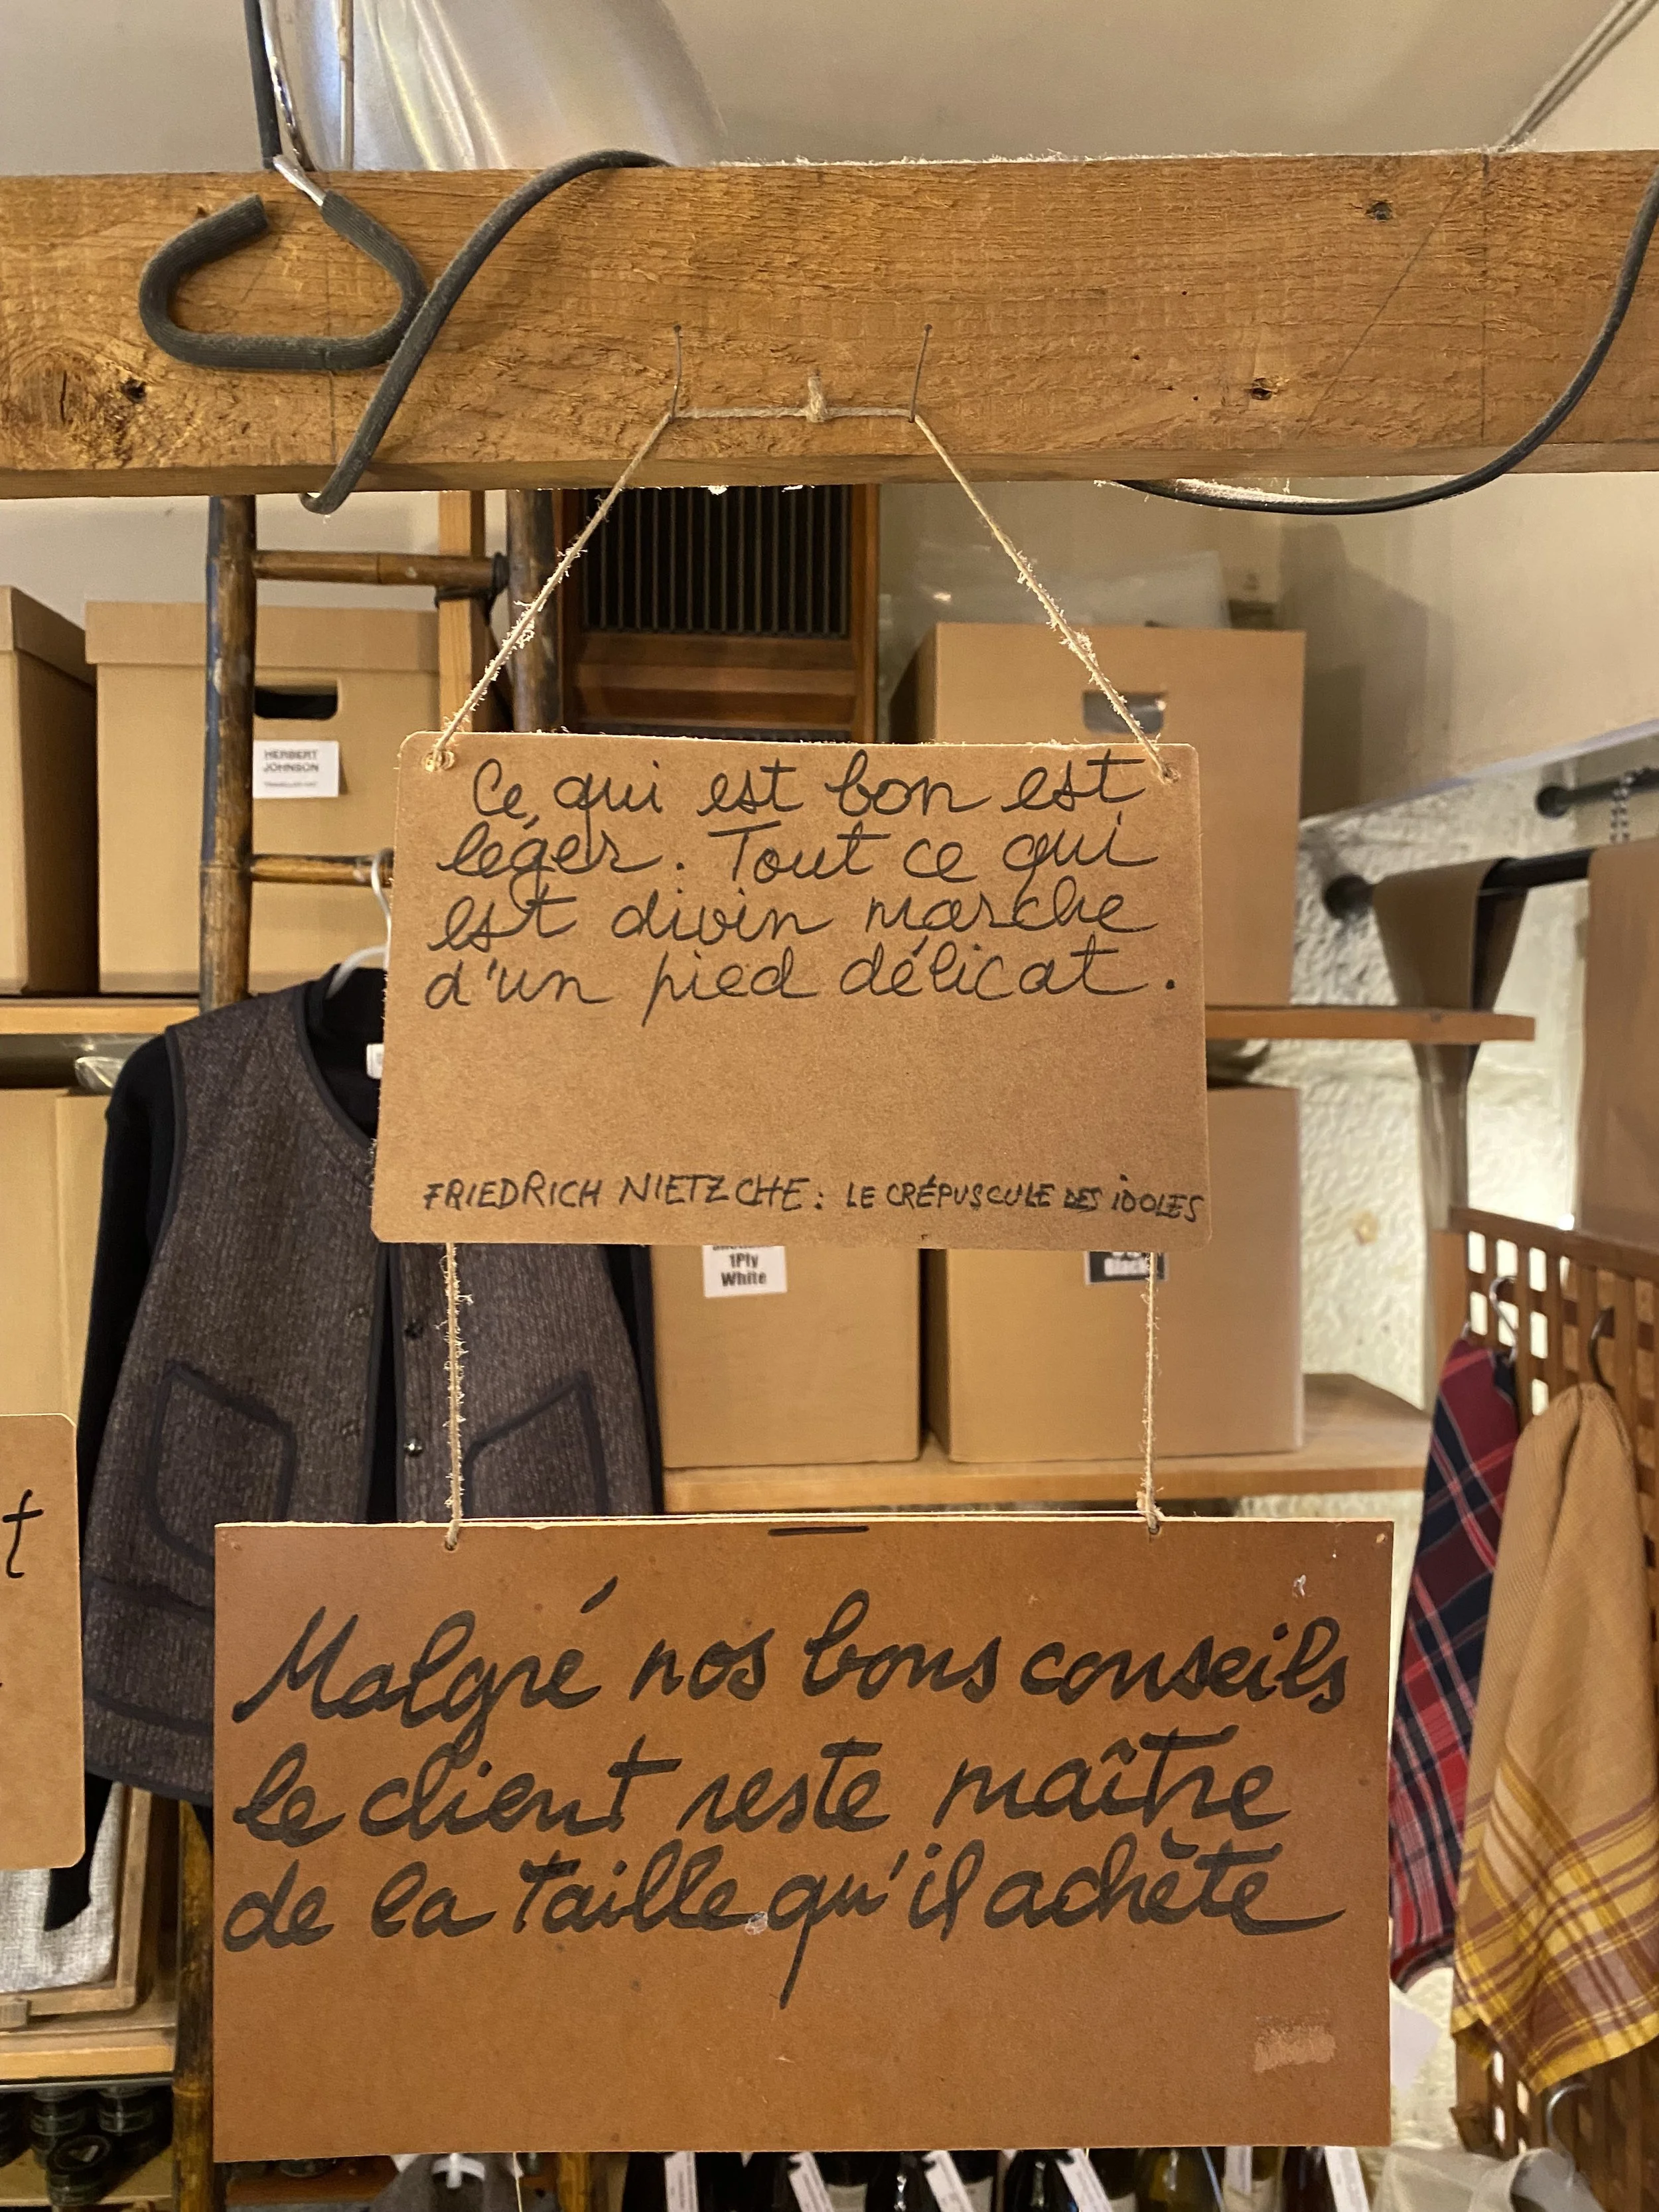 HERBERT
JOHNSON
Ce qui est bon est
léger. Tout ce qui
est divin marche
d'un pied délicat.
FRIEDRICH NIETZCHE : LE CRÉPUSCULE DES iDOLES
1Ply
White
t
Malgré nos bons conseils
le client reste maître
de la taille qu'il achète